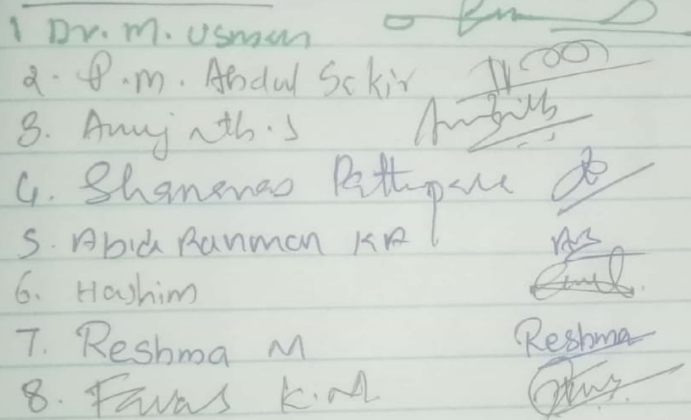 1 Dr. M. Usman
2. P. M. Abdul Sakir
3. Amrjith. S Amrjith
4. Shananas
5. Abid Rahman KA
6. Hashim
7. Reshma M Reshma
8. Favas K.M